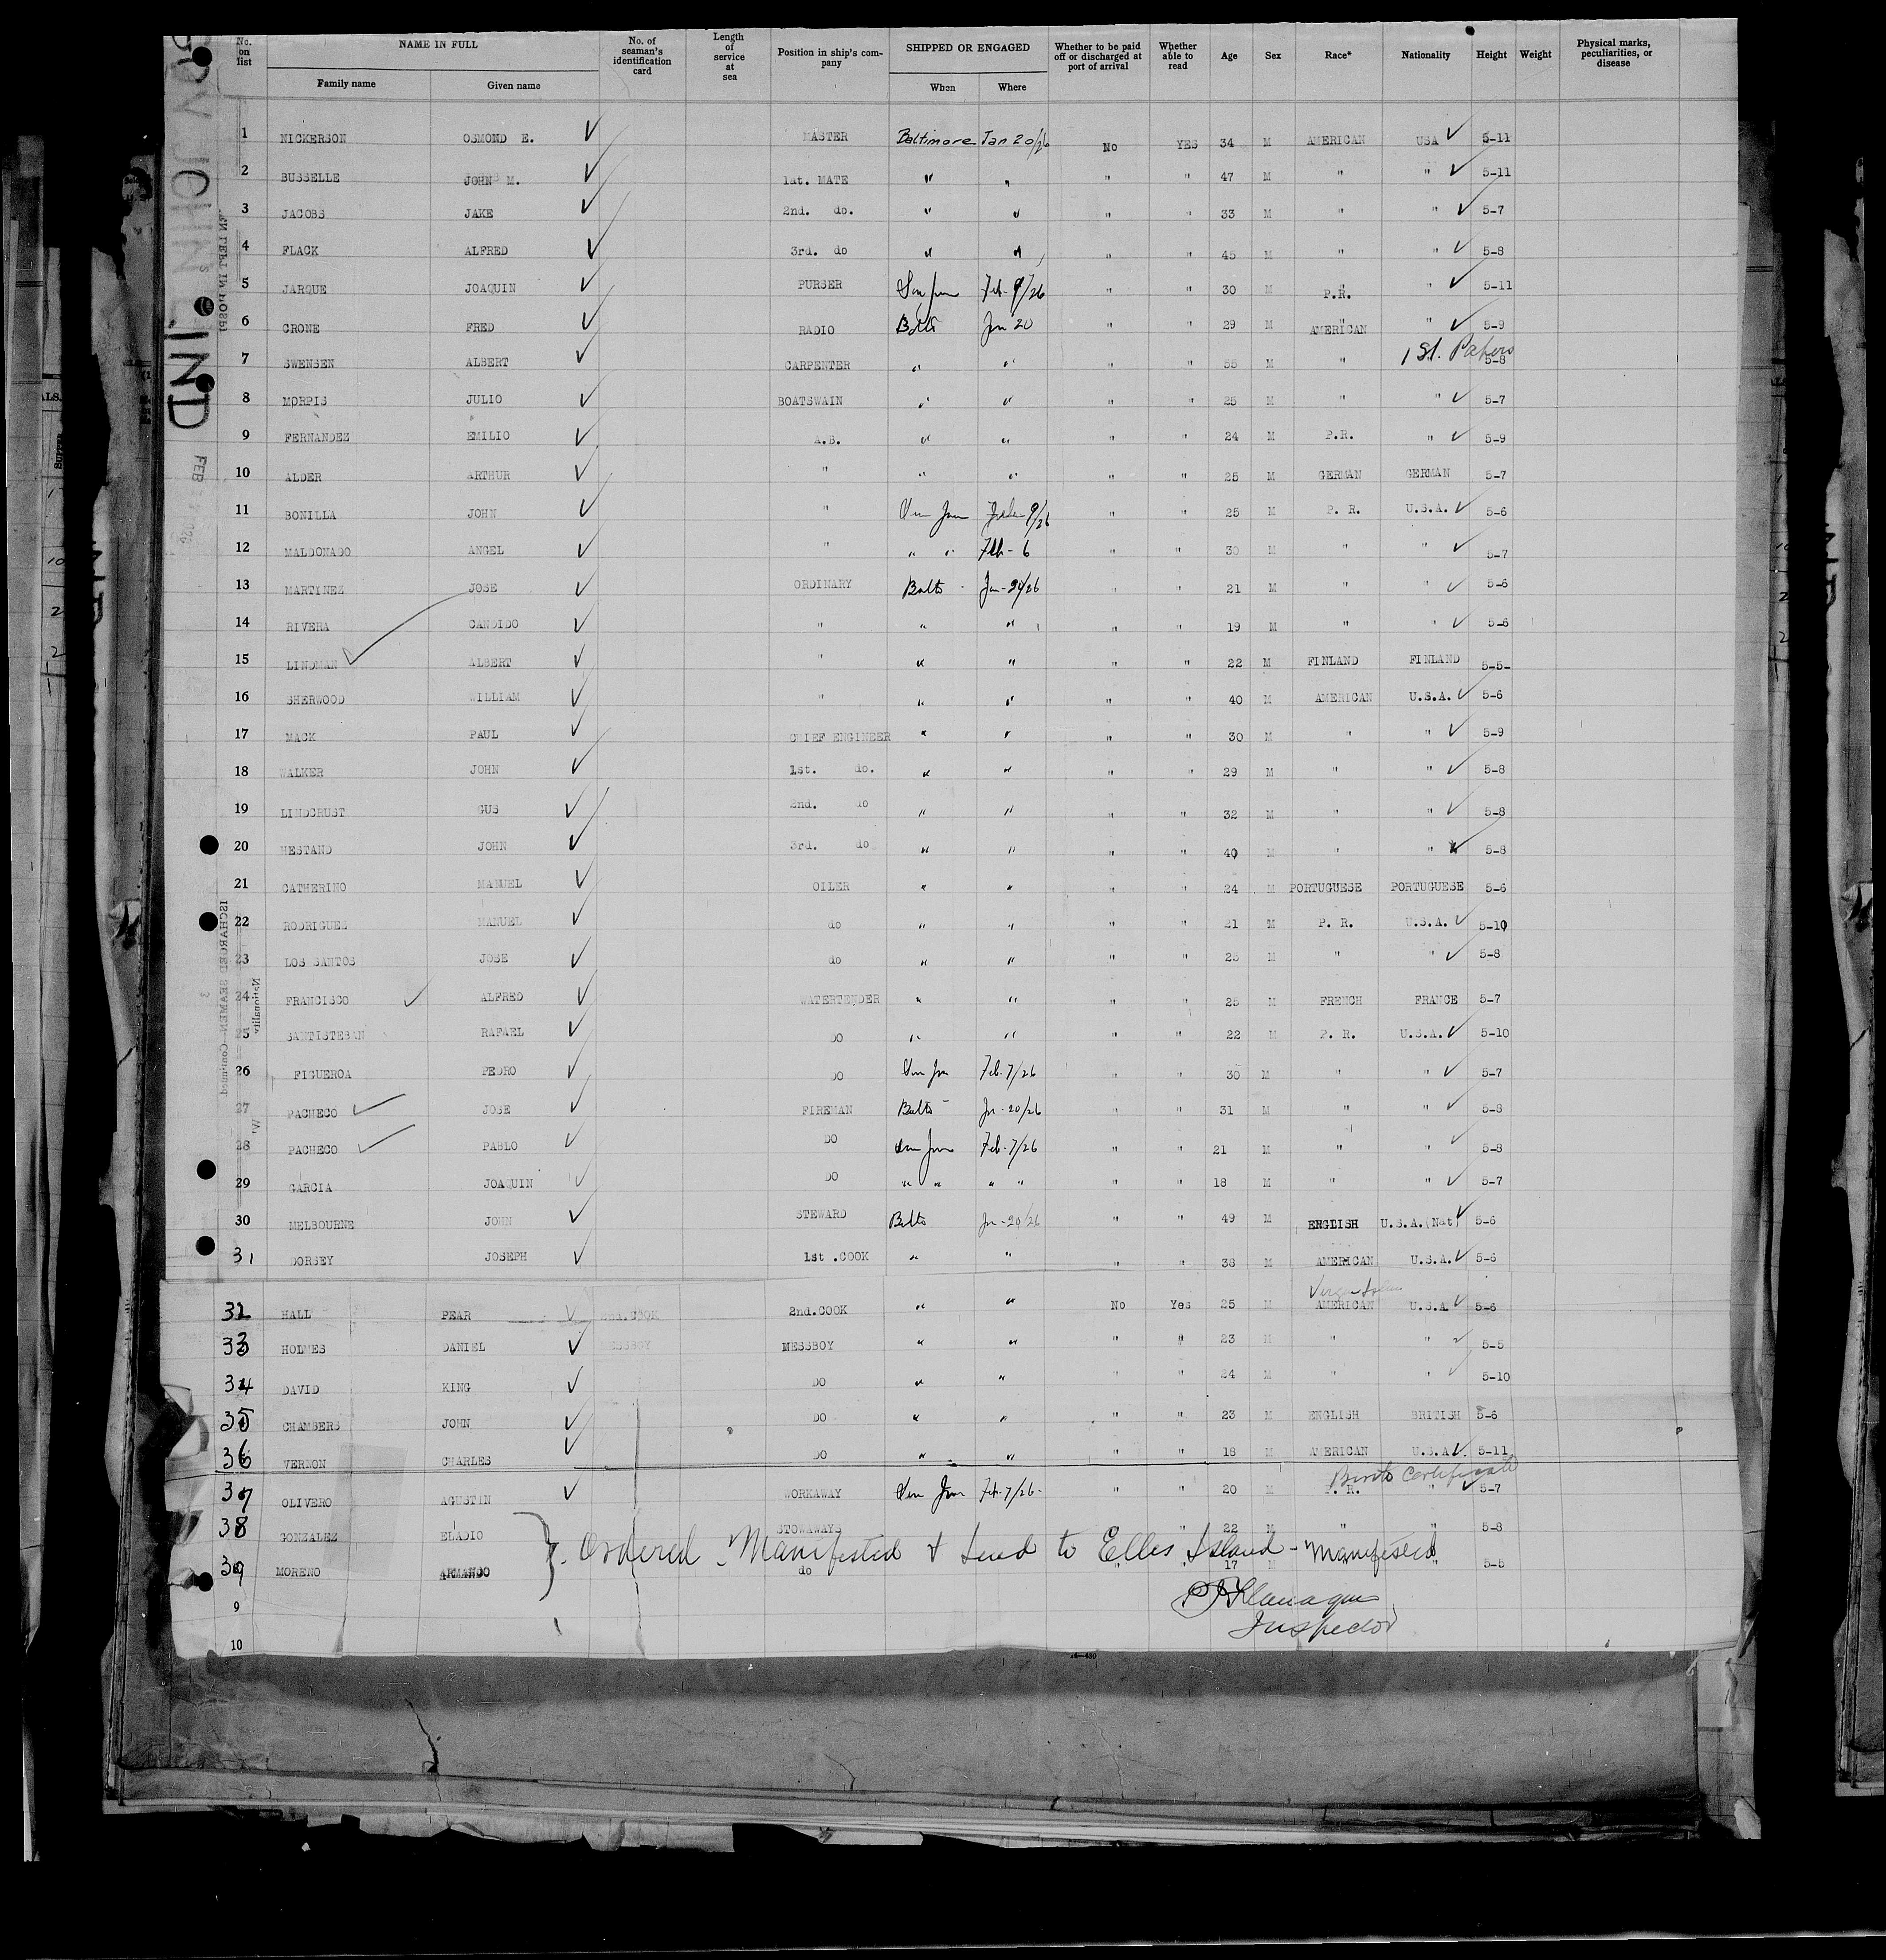 No. on list | NAME IN FULL | No. of seaman's identification card | Length of service at sea | Position in ship's company | SHIPPED OR ENGAGED | Whether to be paid off or discharged at port of arrival | Whether able to read | Age | Sex | Race* | Nationality | Height | Weight | Physical marks, peculiarities, or disease
Family name | Given name | When | Where
1 NICKERSON OSMOND E. MASTER Baltimore Jan 20/26 No YES 34 M AMERICAN USA 5-11
2 BUSSELLE JOHN M. 1at. MATE " " " " 47 M " " 5-11
3 JACOBS JAKE 2nd. do. " " " " 33 M " " 5-7
4 FLACK ALFRED 3rd. do " " " " 45 M " " 5-8
5 JARQUE JOAQUIN PURSER San Juan Feb 9/26 " " 30 M P.R. " 5-11
6 CRONE FRED RADIO Balto Jan 20 " " 29 M AMERICAN " 5-9
7 SWENSEN ALBERT CARPENTER " " " " 55 M " 1st. Papers 5-8
8 MORPIS JULIO BOATSWAIN " " " " 25 M " " 5-7
9 FERNANDEZ EMILIO A.B. " " " " 24 M P.R. " 5-9
10 ALDER ARTHUR " " " " " 25 M GERMAN GERMAN 5-7
11 BONILLA JOHN " San Juan Feb 9/26 " " 25 M P. R. U.S.A. 5-6
12 MALDONADO ANGEL " " " Feb-6 " " 30 M " " 5-7
13 MARTINEZ JOSE ORDINARY Balto - Jan-20/26 " " 21 M " " 5-6
14 RIVERA CANDIDO " " " " " 19 M " " 5-6
15 LINDMAN ALBERT " " " " " 22 M FINLAND FINLAND 5-5-
16 SHERWOOD WILLIAM " " " " " 40 M AMERICAN U.S.A. 5-6
17 MACK PAUL CHIEF ENGINEER " " " " 30 M " " 5-9
18 WALKER JOHN 1st. do. " " " " 29 M " " 5-8
19 LINDCRUST GUS 2nd. do " " " " 32 M " " 5-8
20 HESTAND JOHN 3rd. do " " " " 40 M " " 5-8
21 CATHERINO MANUEL OILER " " " " 24 M PORTUGUESE PORTUGUESE 5-6
22 RODRIGUEZ MANUEL do " " " " 21 M P. R. U.S.A. 5-10
23 LOS SANTOS JOSE do " " " " M " " 5-8
24 FRANCISCO ALFRED WATERTENDER " " " " 25 M FRENCH FRANCE 5-7
25 SANTISTEBAN RAFAEL DO " " " " 22 M P. R. U.S.A. 5-10
26 FIGUEROA PEDRO DO San Juan Feb. 7/26 " " 30 M " " 5-7
27 PACHECO JOSE FIREMAN Balto Jan-20/26 " " 31 M " " 5-8
28 PACHECO PABLO DO San Juan Feb-7/26 " " 21 M " " 5-8
29 GARCIA JOAQUIN DO " " " " " " 18 M " " 5-7
30 MELBOURNE JOHN STEWARD Balto Jan-20/26 " " 49 M ENGLISH U.S.A.(Nat) 5-6
31 DORSEY JOSEPH 1st .COOK " " " " 38 M AMERICAN U.S.A. 5-6
Virgin
32 HALL PEAR 2nd.COOK " " No Yes 25 M AMERICAN U.S.A. 5-6
33 HOLMES DANIEL MESSBOY MESSBOY " " " " 23 M " " 5-5
34 DAVID KING DO " " " " 24 M " " 5-10
35 CHAMBERS JOHN DO " " " " 23 M ENGLISH BRITISH 5-6
36 VERNON CHARLES DO " " " " 18 M AMERICAN U.S.A. 5-11
Birth Certificate
37 OLIVERO AGUSTIN WORKAWAY San Juan Feb-7/26- " " 20 M P. R. " 5-7
38 GONZALEZ ELADIO STOWAWAYS " 22 M " " 5-8
Ordered Manifested & Send to Ellis Island - Manifested
39 MORENO ARMANDO do 17 M " 5-5
P J Flanagan
9
Inspector
10
16—430